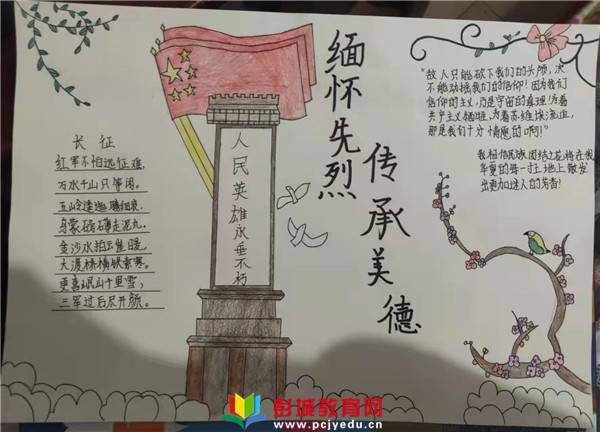 缅怀先烈
传承美德
长征
红军不怕远征难,
万水千山只等闲。
五岭逶迤腾细浪,
乌蒙磅礴走泥丸。
金沙水拍云崖暖,
大渡桥横铁索寒。
更喜岷山千里雪,
三军过后尽开颜。
人民英雄永垂不朽
"敌人只能砍下我们的头颅,决
不能动摇我们的信仰!因为我们
信仰的主义,乃是宇宙的真理!为着
共产主义牺牲,为着苏维埃流血,
那是我们十分情愿的啊!"
我相信民族团结之花将在我
华夏的每一寸土地上散发
出更加迷人的芳香!
彭城教育网
www.pcjyedu.cn